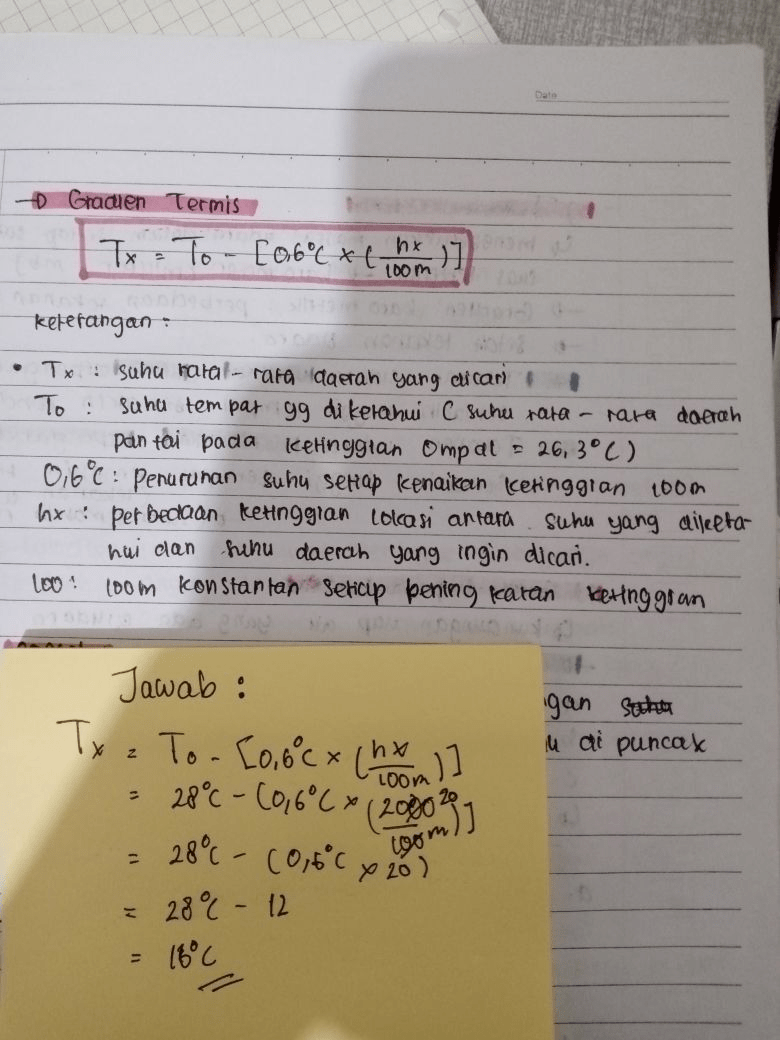 Date
→ Gradien Termis
Tx = To - [0,6°C × (hx/100m)]
keterangan :
• Tx : suhu rata - rata daerah yang dicari
To : suhu tempat yg diketahui ( suhu rata - rata daerah
pantai pada ketinggian 0mpdl = 26,3°C)
0,6°C : Penurunan suhu setiap kenaikan ketinggian 100m
hx : perbedaan ketinggian lokasi antara suhu yang diketa-
hui dan suhu daerah yang ingin dicari.
100 : 100m konstantan setiap peningkatan ketinggian
Jawab :
Tx = To - [0,6°C × (hx/100m)]
= 28°C - (0,6°C × (2000 20/100m)]
= 28°C - (0,6°C × 20)
= 28°C - 12
= 16°C
gan
di puncak